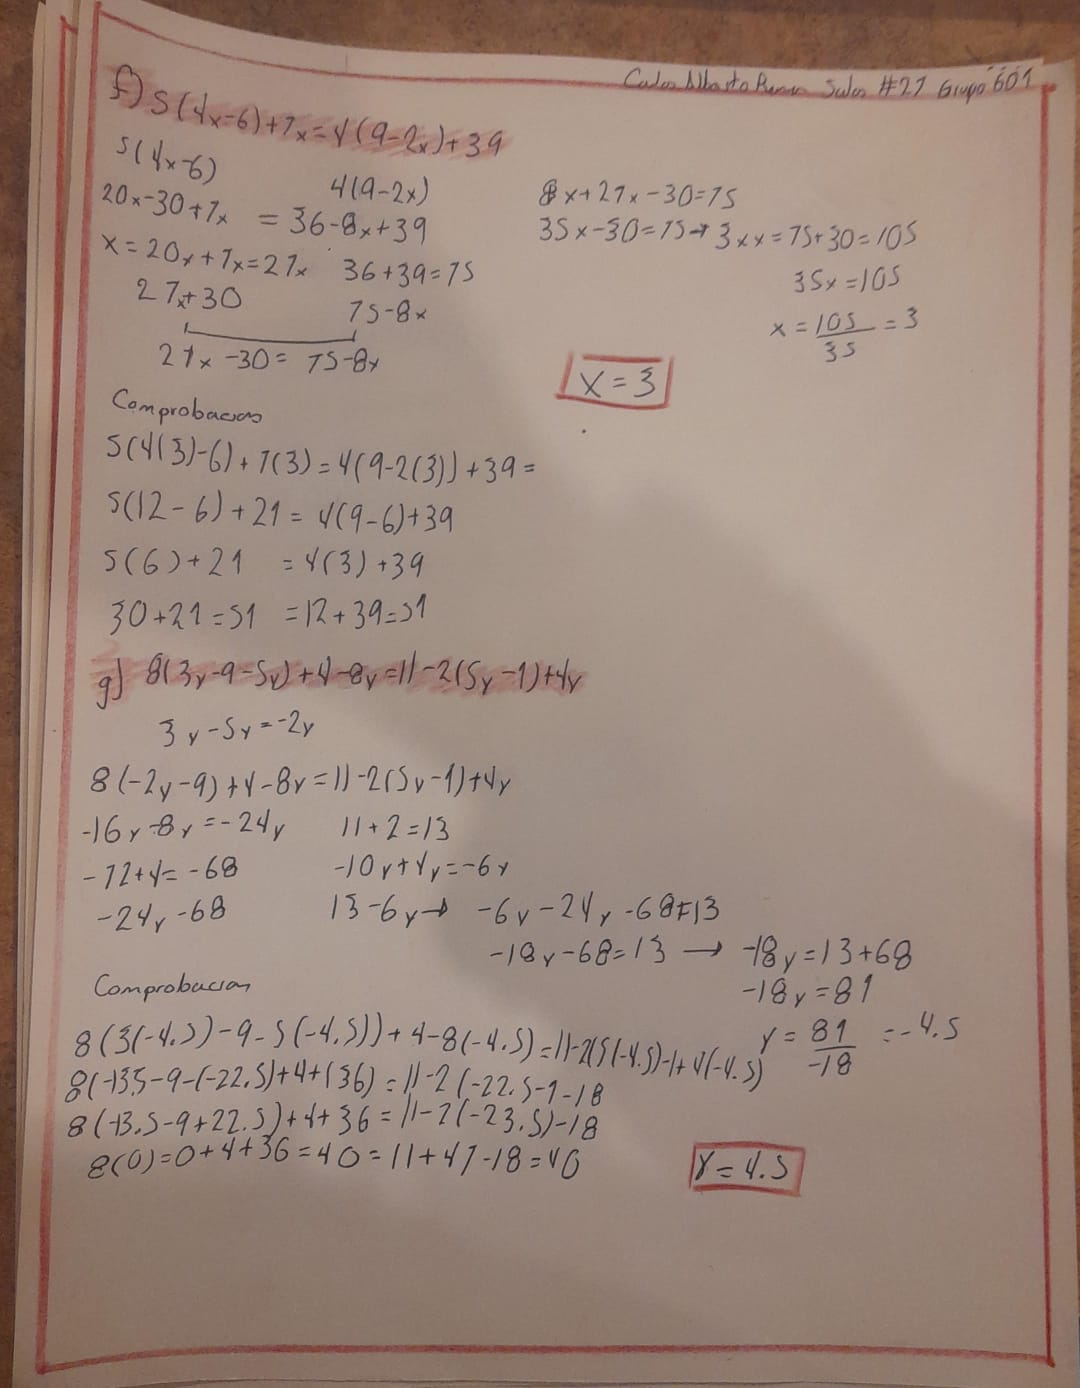 #27 Grupo 601
f) 5(4x-6)+7x=4(9-2x)+39
5(4x-6)
4(9-2x)
20x-30+7x = 36-8x+39
x=20x+7x=27x 36+39=75
27x+30 75-8x
27x-30= 75-8x
8x+27x-30=75
35x-30=75→3xx=75+30=105
35x=105
x=105/35=3
x=3
Comprobacion
5(4(3)-6)+7(3)=4(9-2(3))+39=
5(12-6)+21= 4(9-6)+39
5(6)+21 =4(3)+39
30+21=51 =12+39=51
g) 8(3y-9-5y)+4-8y=11-2(5y-1)+4y
3y-5y=-2y
8(-2y-9)+4-8y=11-2(5y-1)+4y
-16y-8y=-24y 11+2=13
-72+4=-68 -10y+4y=-6y
-24y-68 13-6y→ -6y-24y-68=13
-18y-68=13 → -18y=13+68
-18y=81
y=81/-18=-4.5
Comprobacion
8(3(-4.5)-9-5(-4.5))+4-8(-4.5)=11-2(5(-4.5)-1+4(-4.5)
8(-13.5-9-(-22.5)+4+(36)=11-2(-22.5-1-18
8(-13.5-9+22.5)+4+36=11-2(-23.5)-18
8(0)=0+4+36=40=11+47-18=40
y=4.5